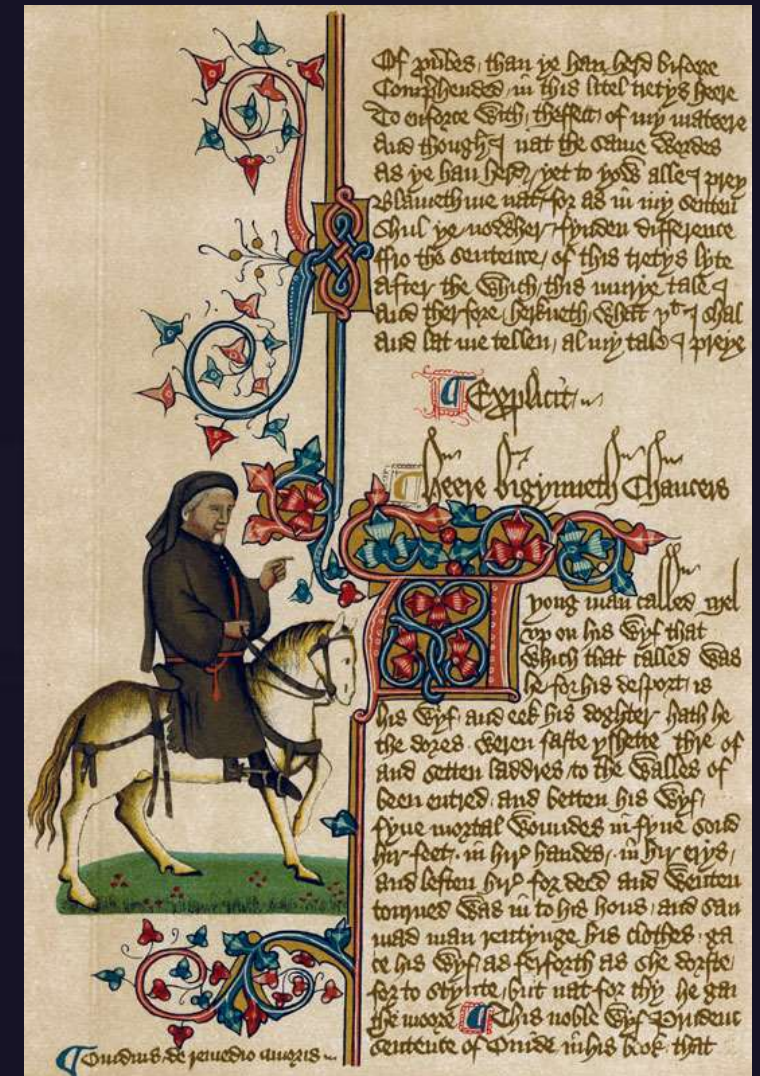 Of prũbes than ye han herd bifore
Comp̱hended in this litel tretys heere
To enforce with theffect of my mateere
And though I nat the same wordes
As ye han herd / yet to yow alle I prey
Blameth me nat for as in my senten
Shul ye nowher fynden difference
ffro the sentence / of this tretys lyte
After the which this murye tale I
And therfore herkneth what þt I shal
And lat me tellen al my tale I preye
Explicit
Heere bigynneth Chaucers
A yong man called Mel
vp on his wyf that
which that called was
he for his desport is
his wyf and eek his doghter hath he
the dores weren faste yshette thre of
and setten laddres to the walles of
been entred and betten his wyf
fyue mortal woundes in fyue sond
hir feet in hir handes in hir erys
and leften hir for deed and wenten
torned was in to his hous and san
mad man rentynge his clothes ga
te his wyf as ferforth as she dorste
for to stynte but nat for thy he gan
the moore This noble wyf Prudent
sentence of Ouide in his book that
Ouidius de remedio amoris